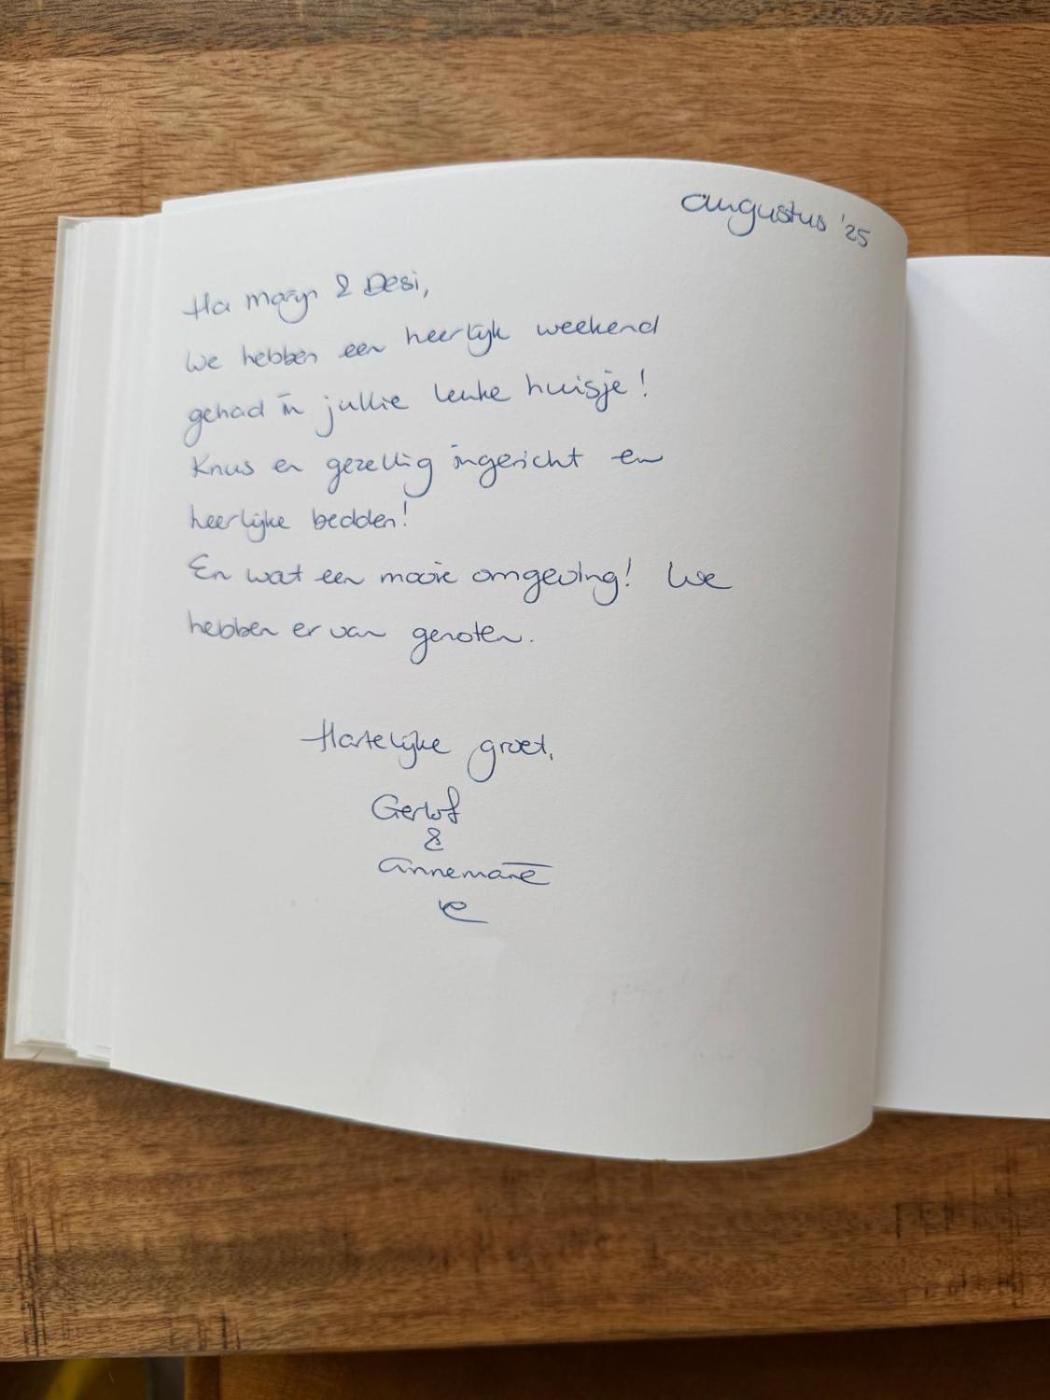 augustus '25
Ha Maryn & Desi,
We hebben een heerlijk weekend
gehad in jullie leuke huisje!
Knus en gezellig ingericht en
heerlijke bedden!
En wat een mooie omgeving! We
hebben er van genoten.
Hartelijke groet,
Gerlof
&
Annemarie